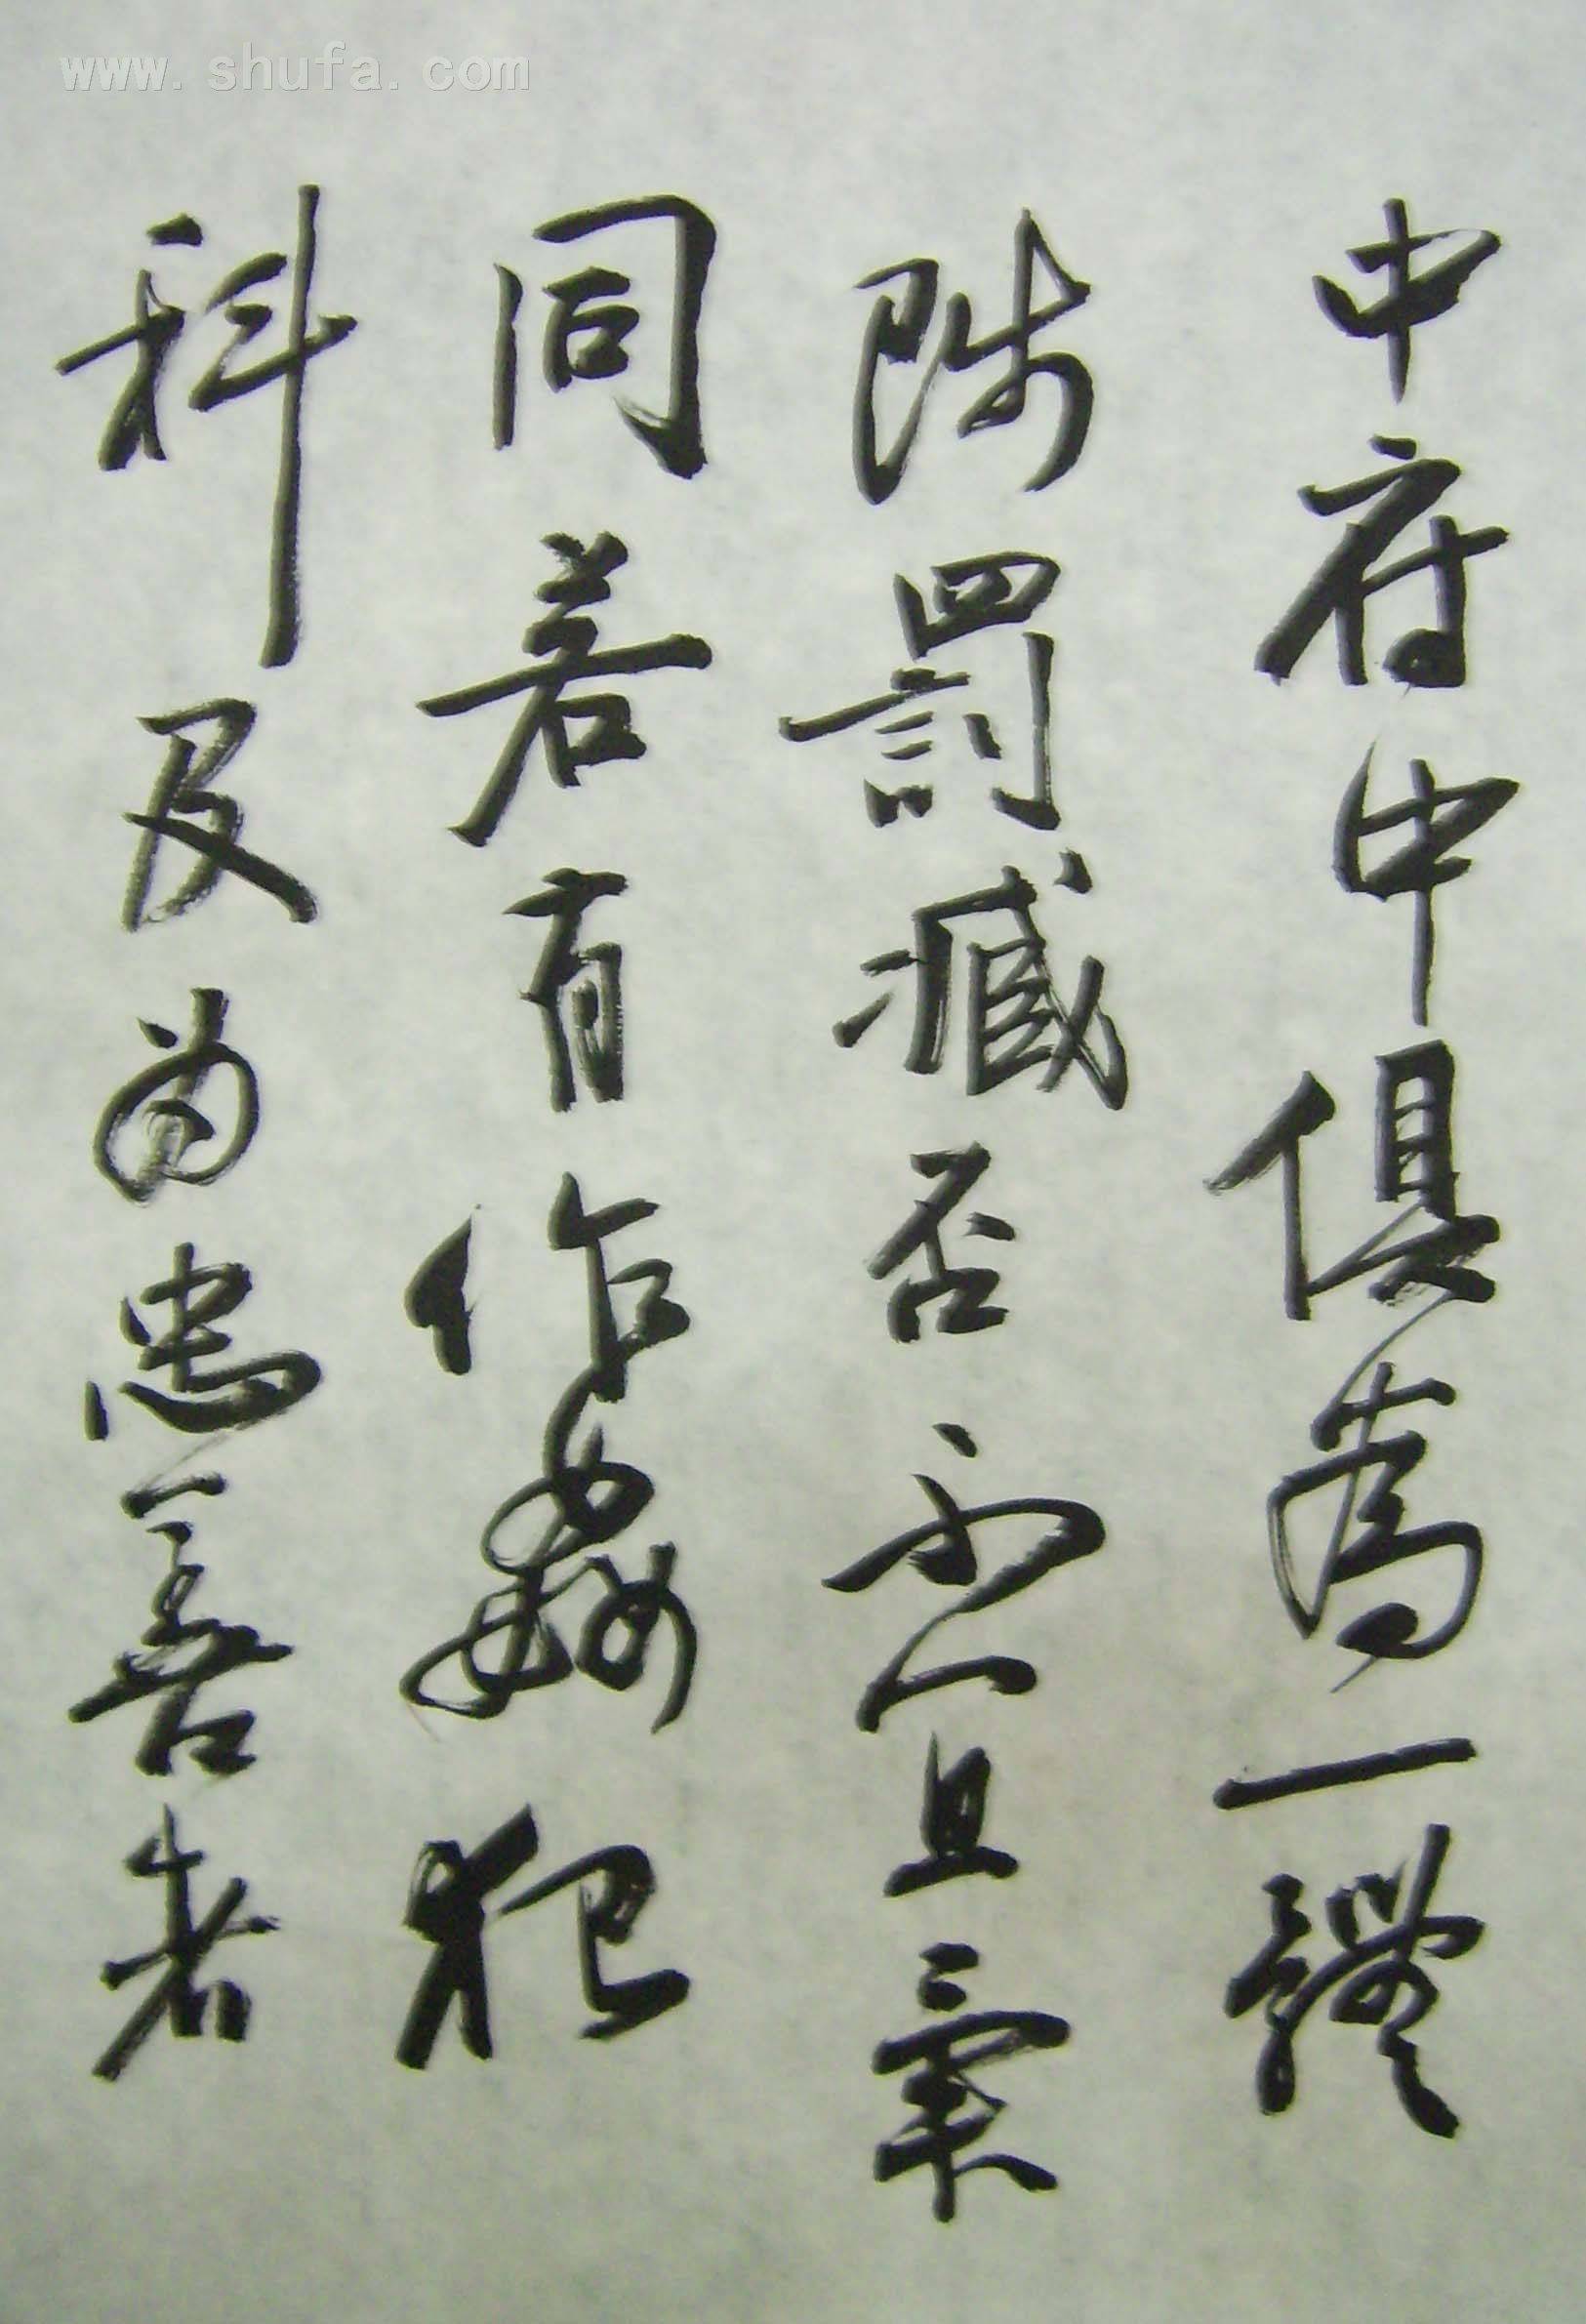 www.shufa.com
中府中俱為一體
陟罰臧否不宜異
同若有作姦犯
科及為忠善者